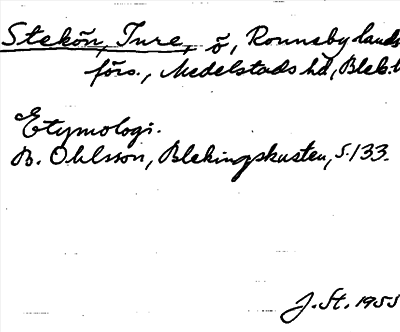 Stekön, Ture, ö, Ronneby lands
förs., Medelstads hd, Blek. l
Etymologi.
B. Ohlsson, Blekingskusten, s. 133.
J. St. 1955